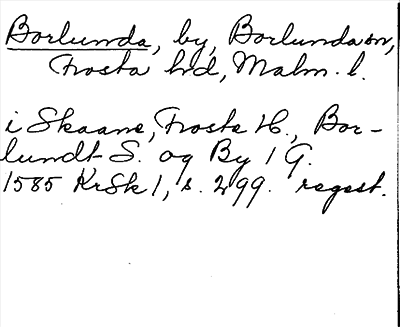 Borlunda, by, Borlunda sn,
Frosta hd, Malm. l.
i Skaane, Froste H., Bor-
lundt S. og By 1 G.
1585 KrSk 1, s. 299. regest.